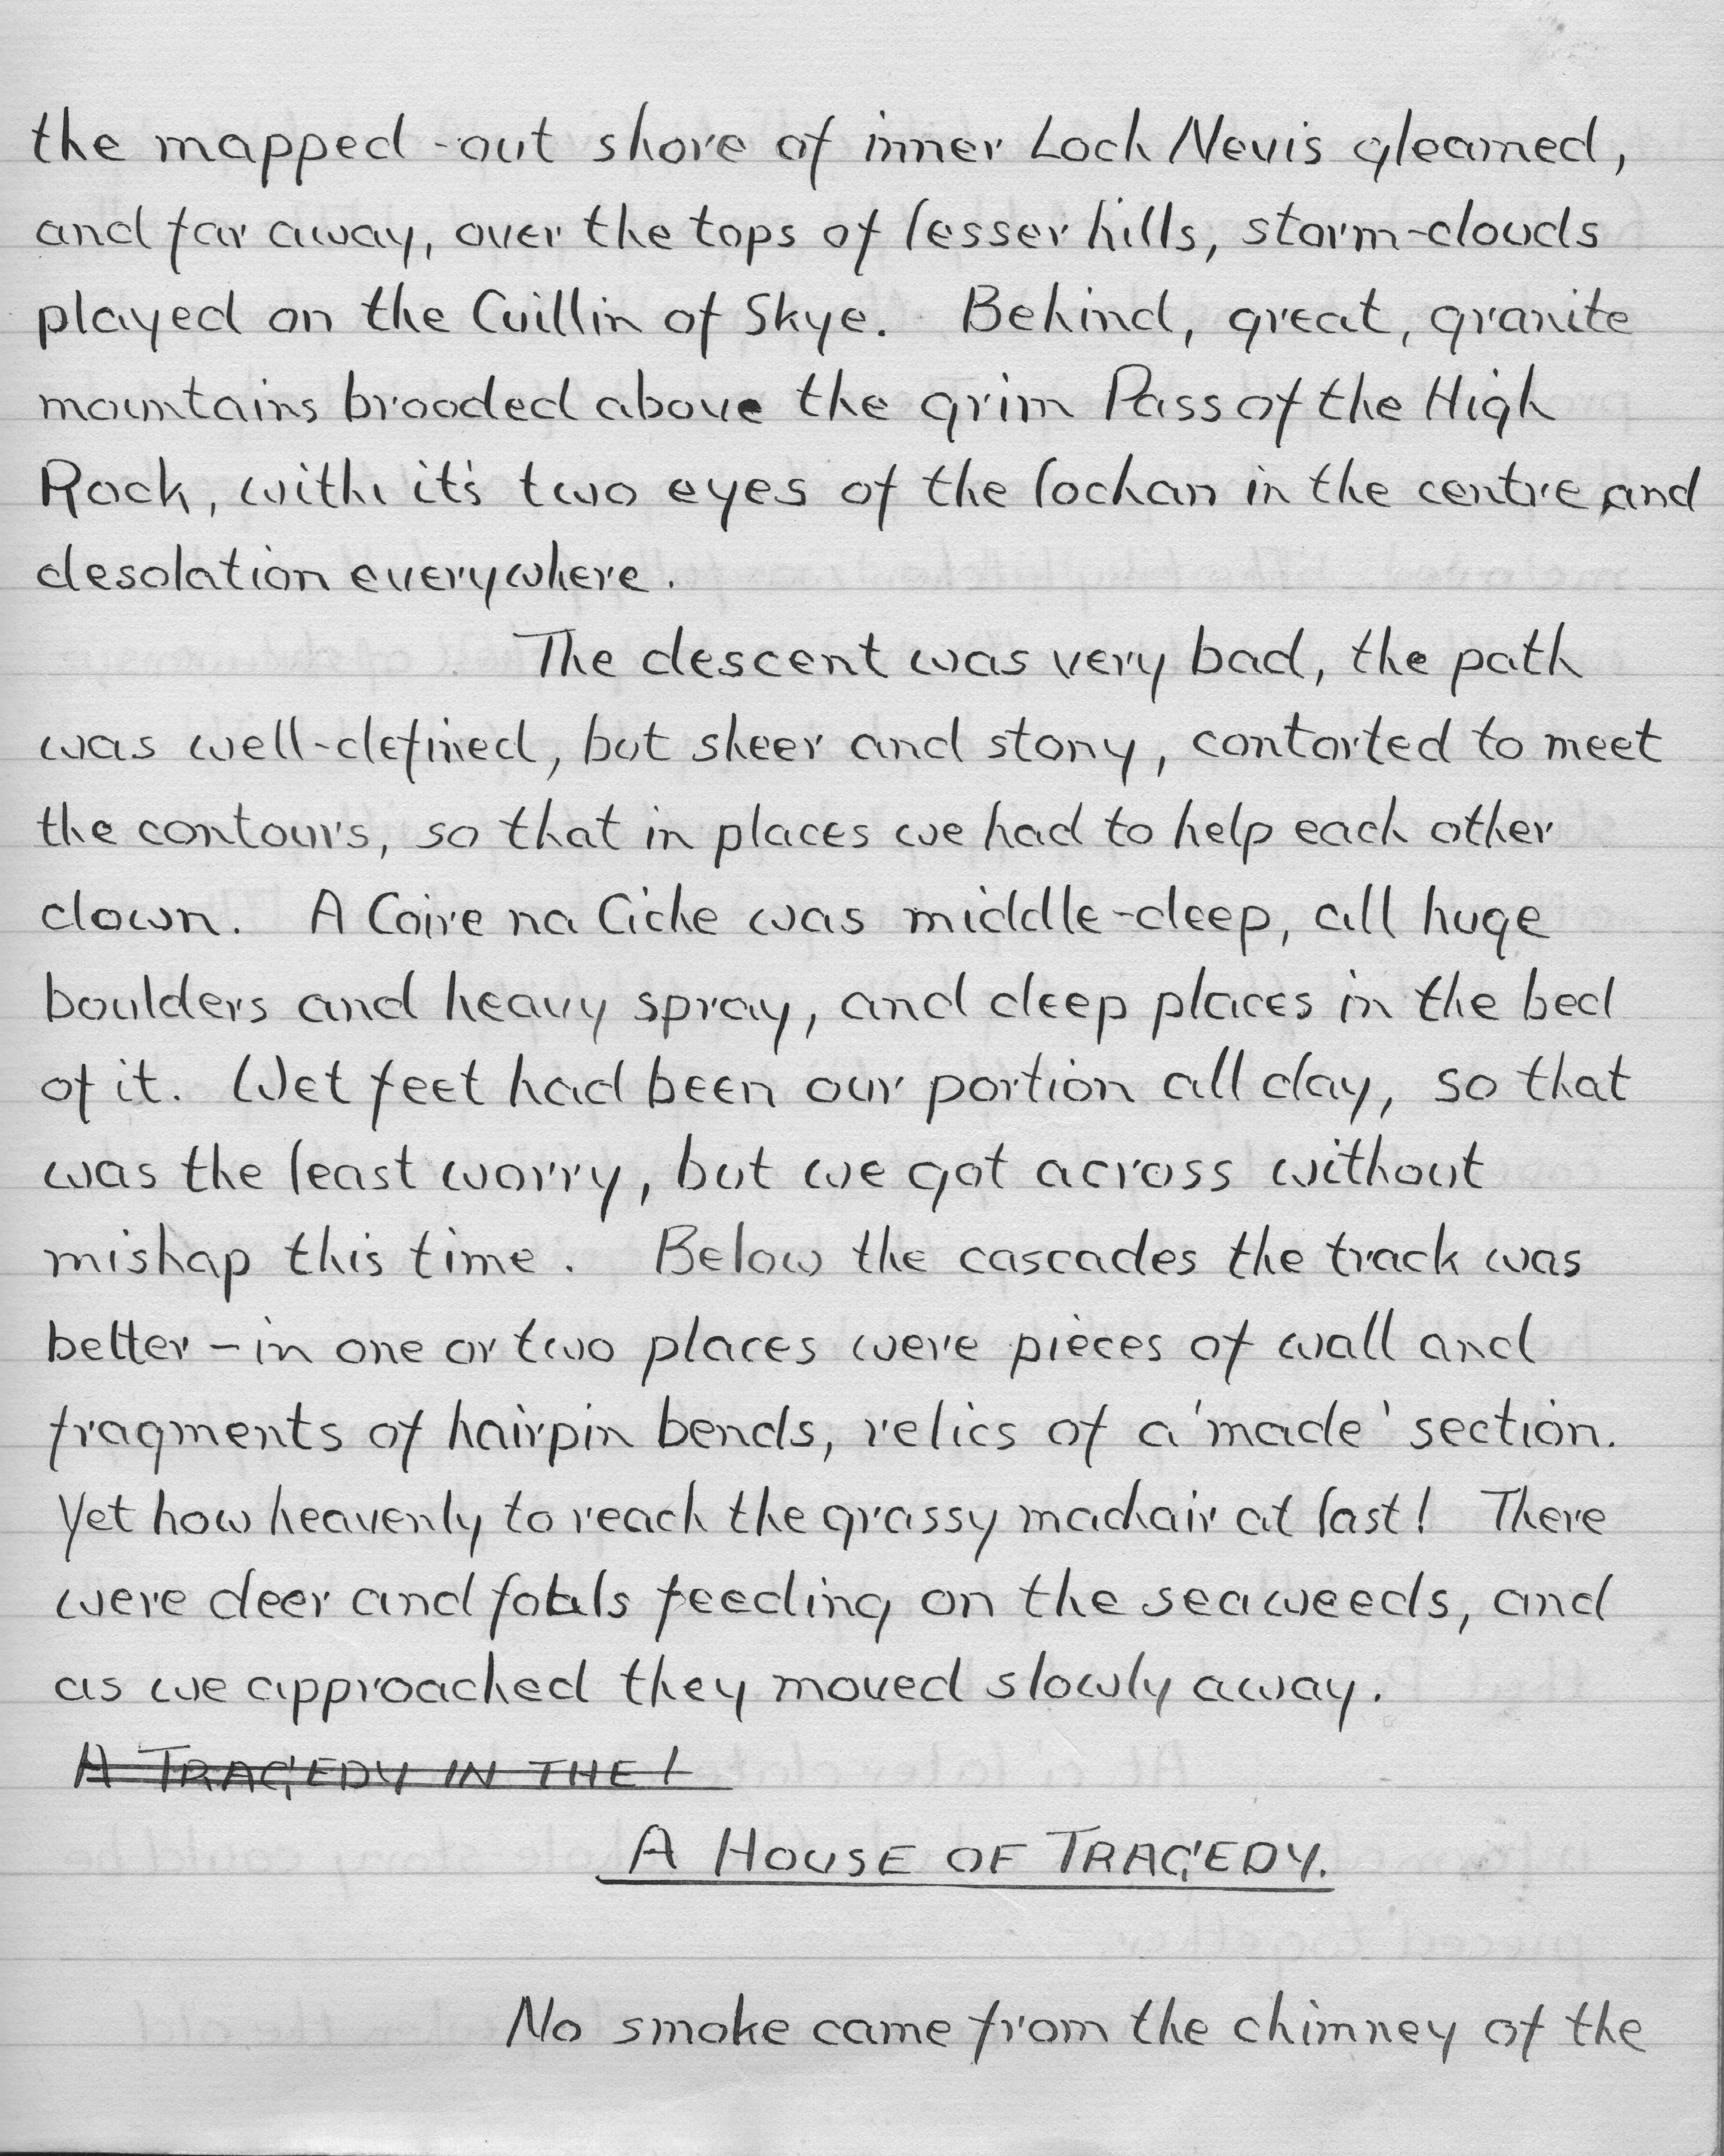 the mapped-out shore of inner Loch Nevis gleamed,
and far away, over the tops of lesser hills, storm-clouds
played on the Cuillin of Skye. Behind, great, granite
mountains brooded above the grim Pass of the High
Rock, with it's two eyes of the lochan in the centre and
desolation everywhere.
The descent was very bad, the path
was well-defined, but sheer and stony, contorted to meet
the contours, so that in places we had to help each other
down. A Coire na Ciche was middle-deep, all huge
boulders and heavy spray, and deep places in the bed
of it. Wet feet had been our portion all day, so that
was the least worry, but we got across without
mishap this time. Below the cascades the track was
better - in one or two places were pieces of wall and
fragments of hairpin bends, relics of a 'made' section.
Yet how heavenly to reach the grassy machair at last! There
were deer and foals feeding on the seaweeds, and
as we approached they moved slowly away.
A TRAGEDY IN THE
A HOUSE OF TRAGEDY.
No smoke came from the chimney of the